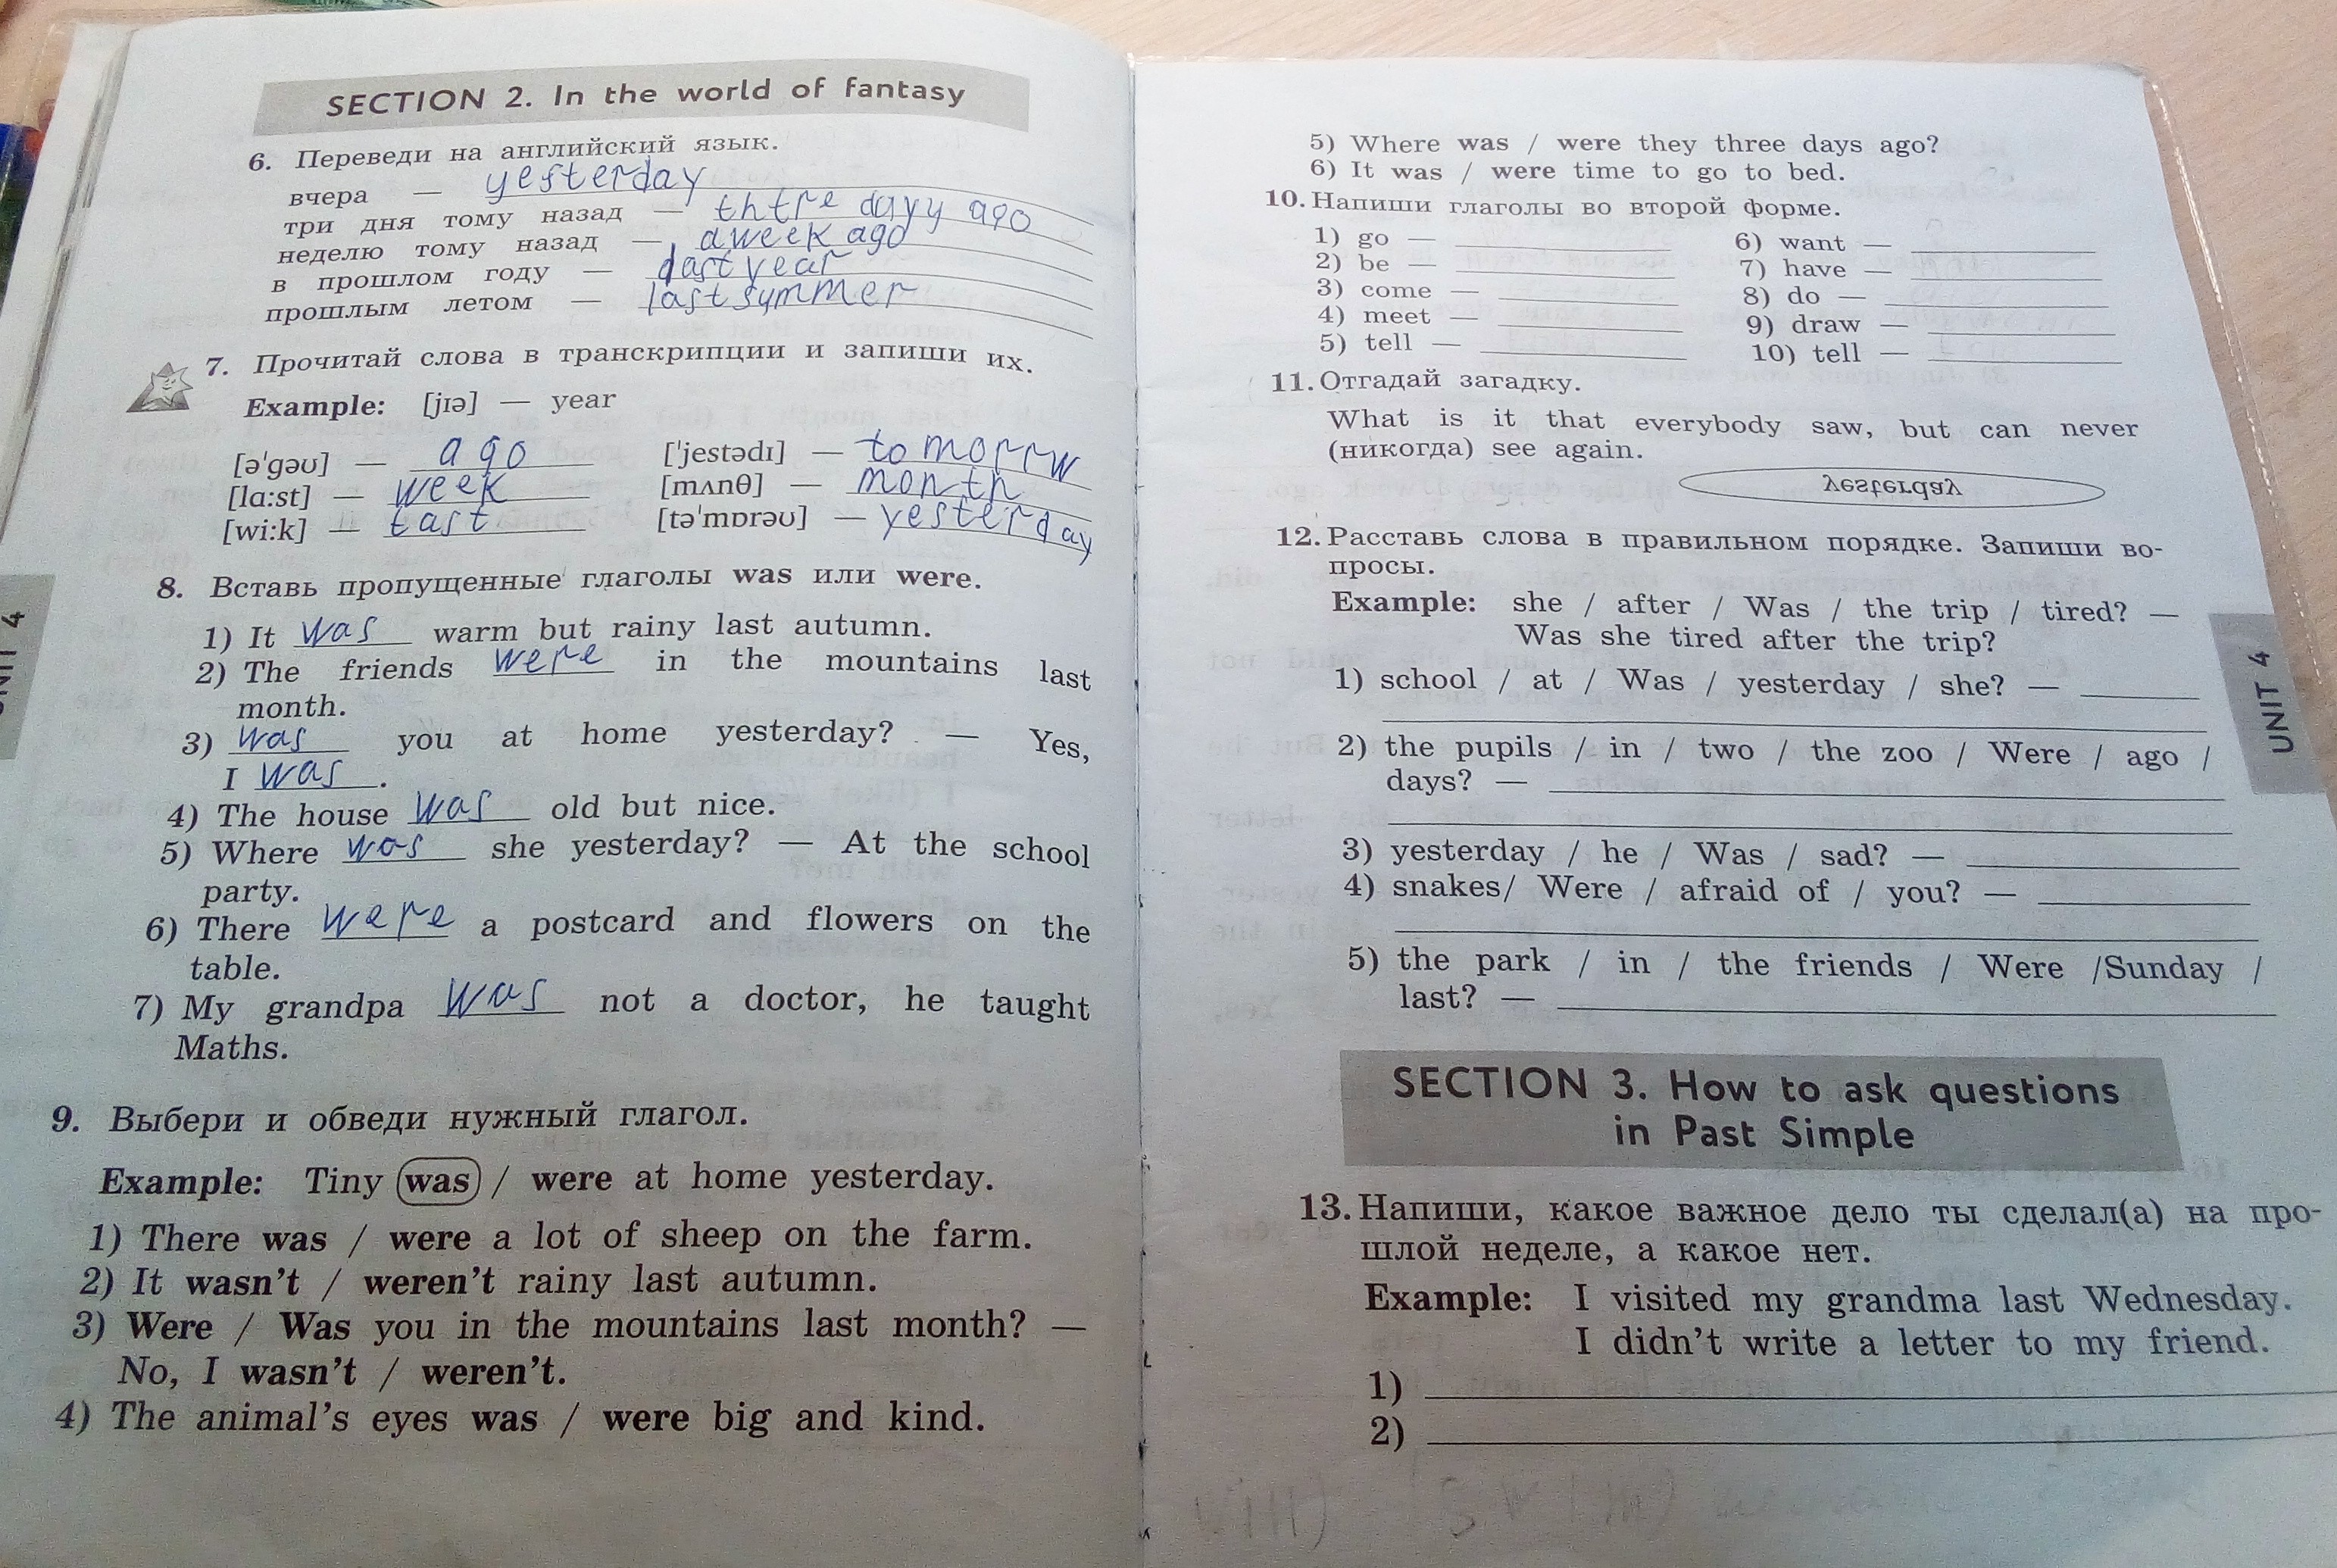 SECTION 2. In the world of fantasy
6. Переведи на английский язык.
вчера — yesterday
три дня тому назад — thtre dayy ago
неделю тому назад — a week ago
в прошлом году — last year
прошлым летом — last summer
7. Прочитай слова в транскрипции и запиши их.
Example: [jɪə] — year
[ə'gəʊ] — ago ['jestədɪ] — tomorrw
[lɑ:st] — week [mʌnθ] — month
[wi:k] — last [tə'mɒrəʊ] — yesterday
8. Вставь пропущенные глаголы was или were.
1) It was warm but rainy last autumn.
2) The friends were in the mountains last
month.
3) was you at home yesterday? — Yes,
I was.
4) The house was old but nice.
5) Where was she yesterday? — At the school
party.
6) There were a postcard and flowers on the
table.
7) My grandpa was not a doctor, he taught
Maths.
9. Выбери и обведи нужный глагол.
Example: Tiny was / were at home yesterday.
1) There was / were a lot of sheep on the farm.
2) It wasn't / weren't rainy last autumn.
3) Were / Was you in the mountains last month? —
No, I wasn't / weren't.
4) The animal's eyes was / were big and kind.
UNIT 4
5) Where was / were they three days ago?
6) It was / were time to go to bed.
10. Напиши глаголы во второй форме.
1) go — 6) want —
2) be — 7) have —
3) come — 8) do —
4) meet — 9) draw —
5) tell — 10) tell —
11. Отгадай загадку.
What is it that everybody saw, but can never
(никогда) see again.
yesterday
12. Расставь слова в правильном порядке. Запиши во-
просы.
Example: she / after / Was / the trip / tired? —
Was she tired after the trip?
1) school / at / Was / yesterday / she? —
2) the pupils / in / two / the zoo / Were / ago /
days? —
3) yesterday / he / Was / sad? —
4) snakes/ Were / afraid of / you? —
5) the park / in / the friends / Were /Sunday /
last? —
UNIT 4
SECTION 3. How to ask questions
in Past Simple
13. Напиши, какое важное дело ты сделал(а) на про-
шлой неделе, а какое нет.
Example: I visited my grandma last Wednesday.
I didn't write a letter to my friend.
1)
2)